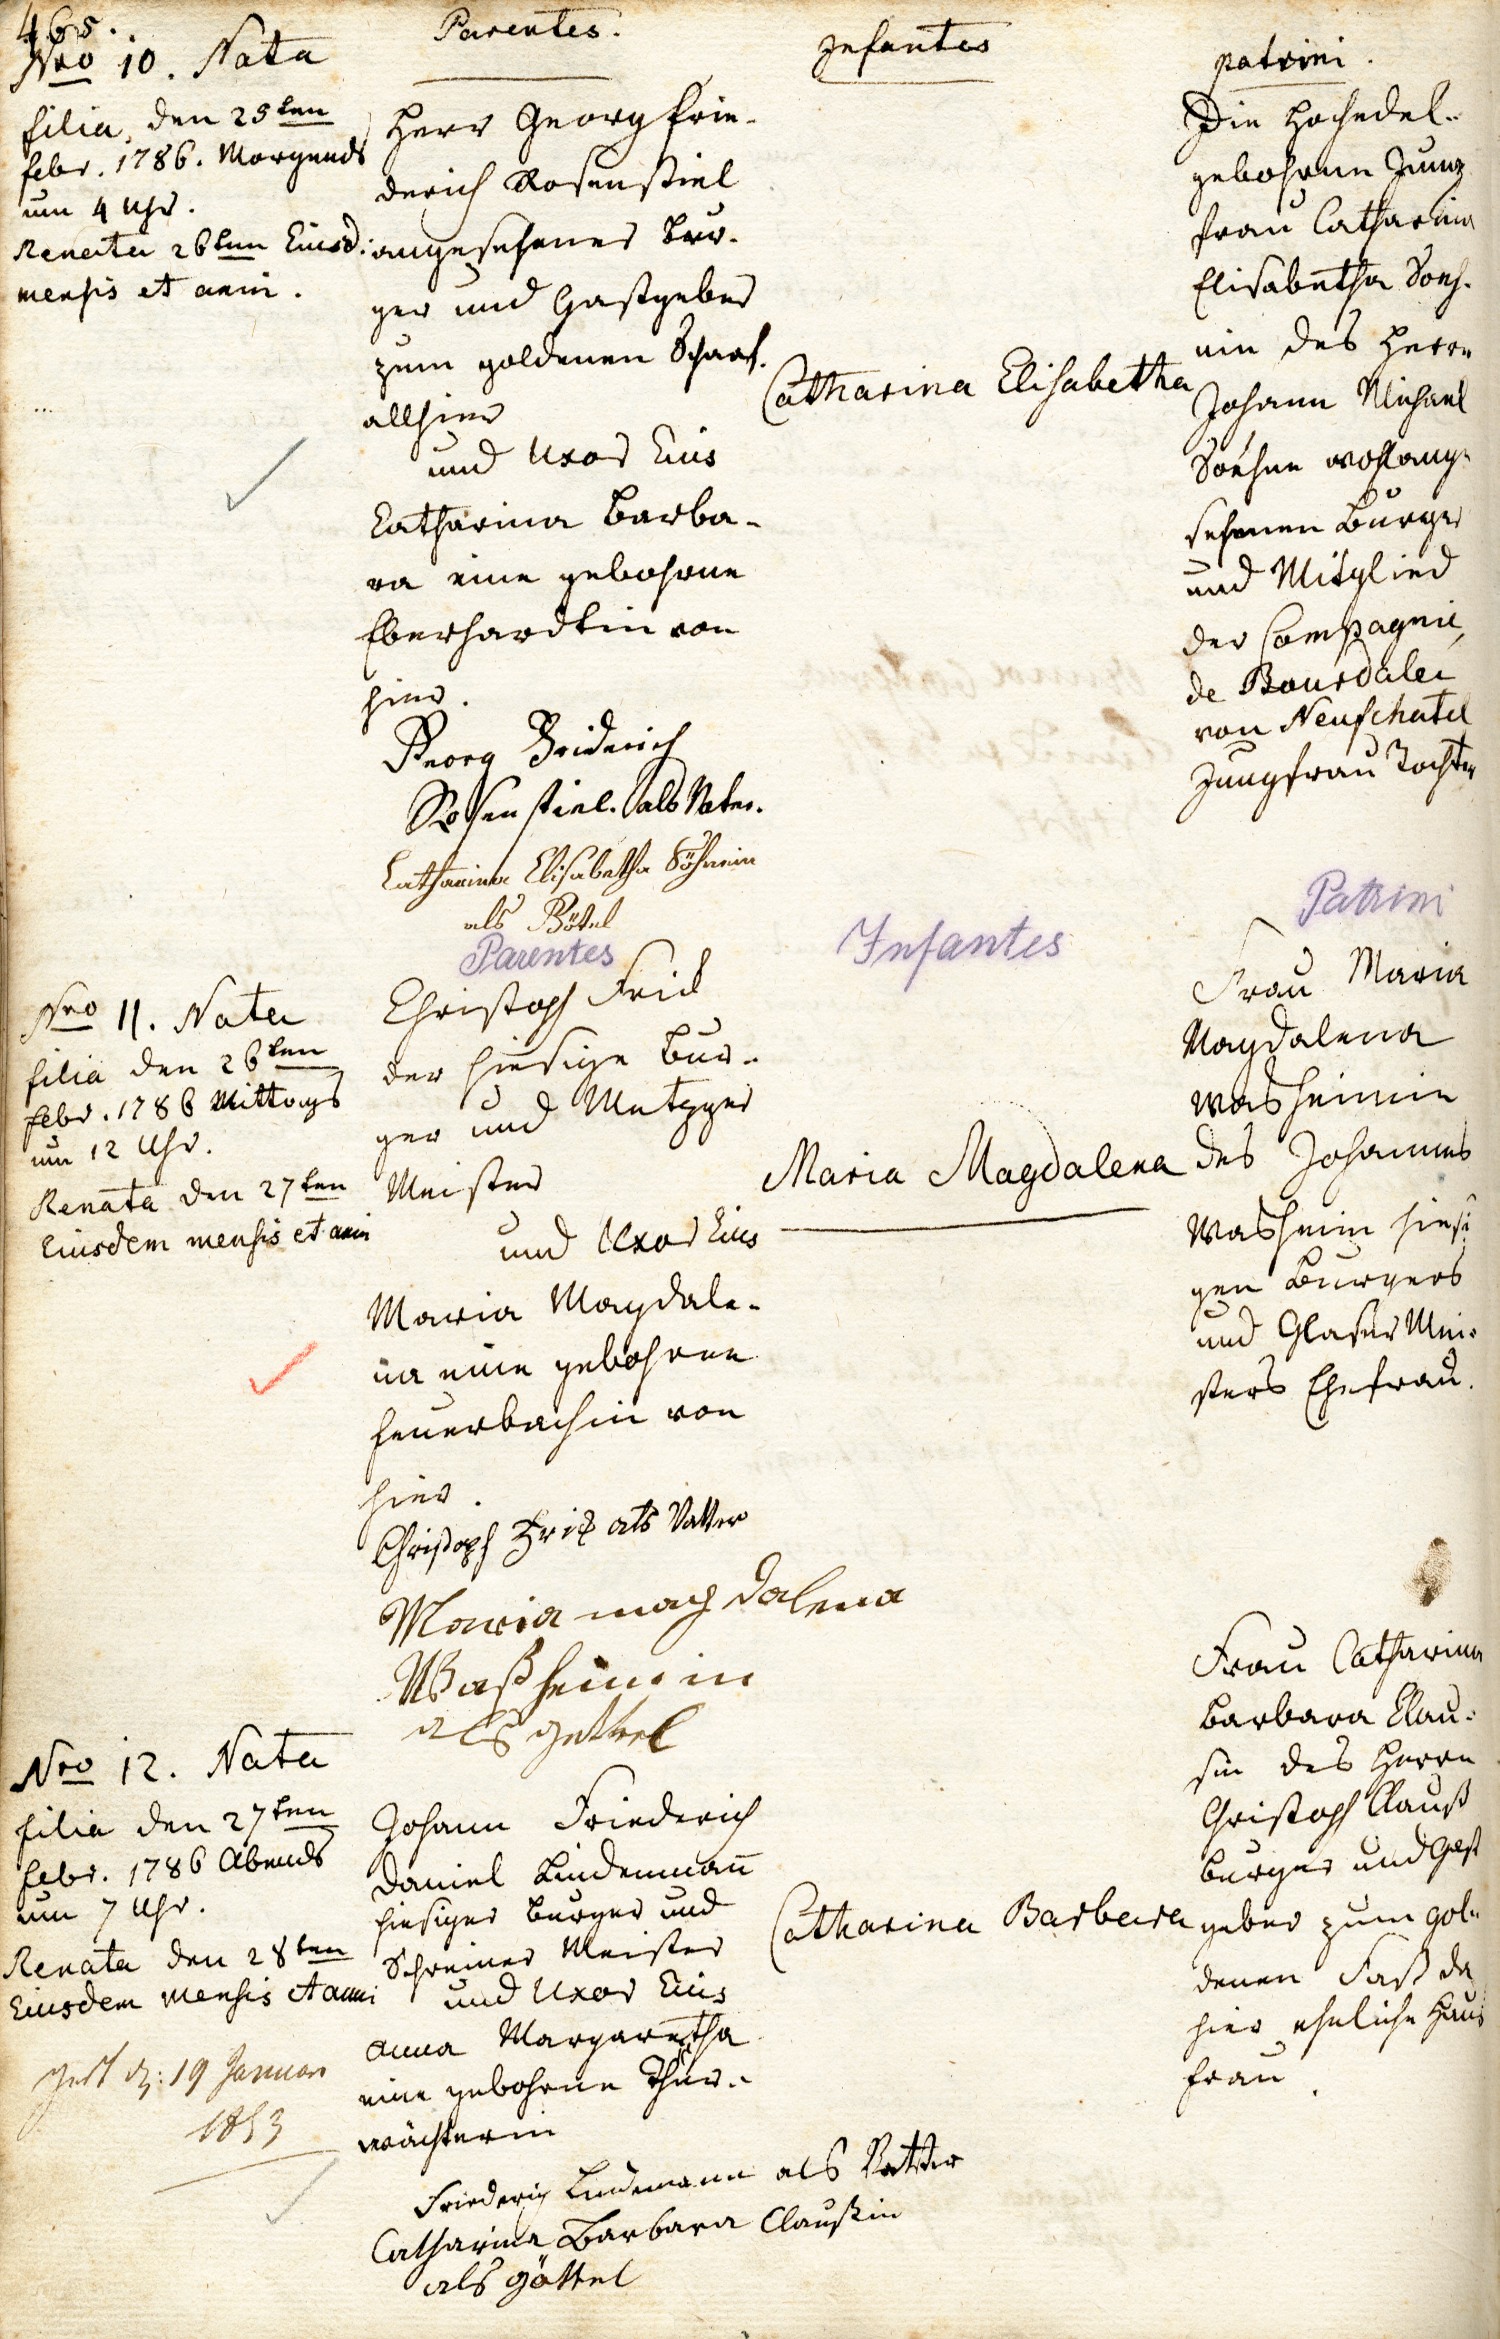 465.
Parentes.
Infantes
patrini.
Nro 10. Nata
filia den 25ten
febr. 1786. Morgends
um 4 Uhr.
Renata 26ten Eiusd.
mensis et anni.
Herr Georg frie-
derich Rosenstiel
angesehener Bur-
ger und Gastgeber
zum goldenen Schaaf.
allhier
und Uxor Eius
Catharina Barba-
ra eine gebohrne
Eberhardtin von
hier.
Georg Friderich
Rosenstiel. als Vater.
Catharina Elisabetha Söhnein
als Götel
Catharina Elisabetha
Die Hochedel-
gebohrne Jung
frau Catharina
Elisabetha Soeh-
nin des Herrn
Johann Michael
Soehne wohlange-
sehenen Burger
und Mitglied
der Compagnie
de Bourdalei
von Neufchatel
Jungfrau Tochter
Parentes
Infantes
Patrini
Nro 11. Nata
filia den 26ten
febr. 1786 Mittags
um 12 Uhr.
Renata den 27ten
Eiusdem mensis et anni
Christoph Frick
der hiesige Bur-
ger und Metzger
Meister
und Uxor Eius
Maria Magdale-
na eine gebohrne
feuerbachin von
hier.
Christoph Frick als Vatter
Maria magdalena
Waßheimin
als gettel
Maria Magdalena
Frau Maria
Magdalena
Washeimin
des Johannes
Washeim hiesi
gen Burgers
und Glaser Mei-
sters Ehefrau.
Nro 12. Nata
filia den 27ten
febr. 1786 Abends
um 7 Uhr.
Renata den 28ten
Eiusdem mensis et anni
gest d: 19 Januar
1853
Johann Friederich
Daniel Lindenmann
hiesiger Burger und
Schreiner Meister
und Uxor Eius
Anna Margaretha
eine gebohrne Thür-
wächterin
Friederich Lindemann als Vatter
Catharina Barbara Claußin
als göttel
Catharina Barbara
Frau Catharina
Barbara Clau-
sin des Herrn
Christoph Clauß
Burger und Gast
geber zum gol-
denen Faß da
hier eheliche Haus
frau.